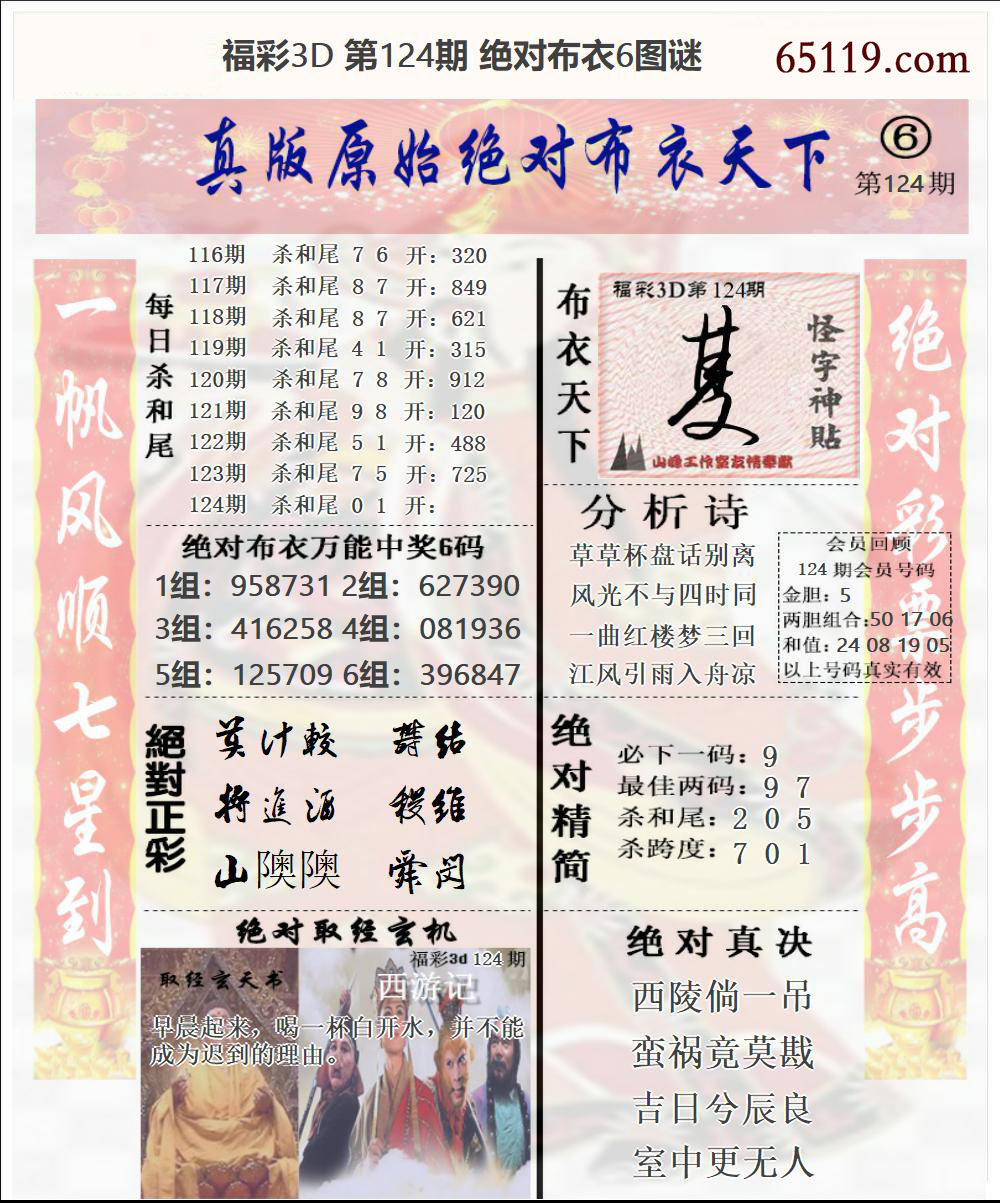 福彩3D 第124期 绝对布衣6图谜
65119.com
真版原始绝对布衣天下
⑥
第124期
一帆风顺七星到
绝对彩票步步高
每日杀和尾
116期 杀和尾 7 6 开：320
117期 杀和尾 8 7 开：849
118期 杀和尾 8 7 开：621
119期 杀和尾 4 1 开：315
120期 杀和尾 7 8 开：912
121期 杀和尾 9 8 开：120
122期 杀和尾 5 1 开：488
123期 杀和尾 7 5 开：725
124期 杀和尾 0 1 开：
绝对布衣万能中奖6码
1组：958731 2组：627390
3组：416258 4组：081936
5组：125709 6组：396847
布衣天下
福彩3D第124期
怪字神贴
山峰工作室友情奉献
分析诗
草草杯盘话别离
风光不与四时同
一曲红楼梦三回
江风引雨入舟凉
会员回顾
124期会员号码
金胆：5
两胆组合:50 17 06
和值：24 08 19 05
以上号码真实有效
絕對正彩
莫计較
將進酒
山隩隩 舜闵
绝对精简
必下一码：9
最佳两码：9 7
杀和尾：2 0 5
杀跨度：7 0 1
绝对取经玄机
福彩3d 124期
取经玄天书
西游记
早晨起来，喝一杯白开水，并不能
成为迟到的理由。
绝对真决
西陵倘一吊
蛮祸竟莫戡
吉日兮辰良
室中更无人